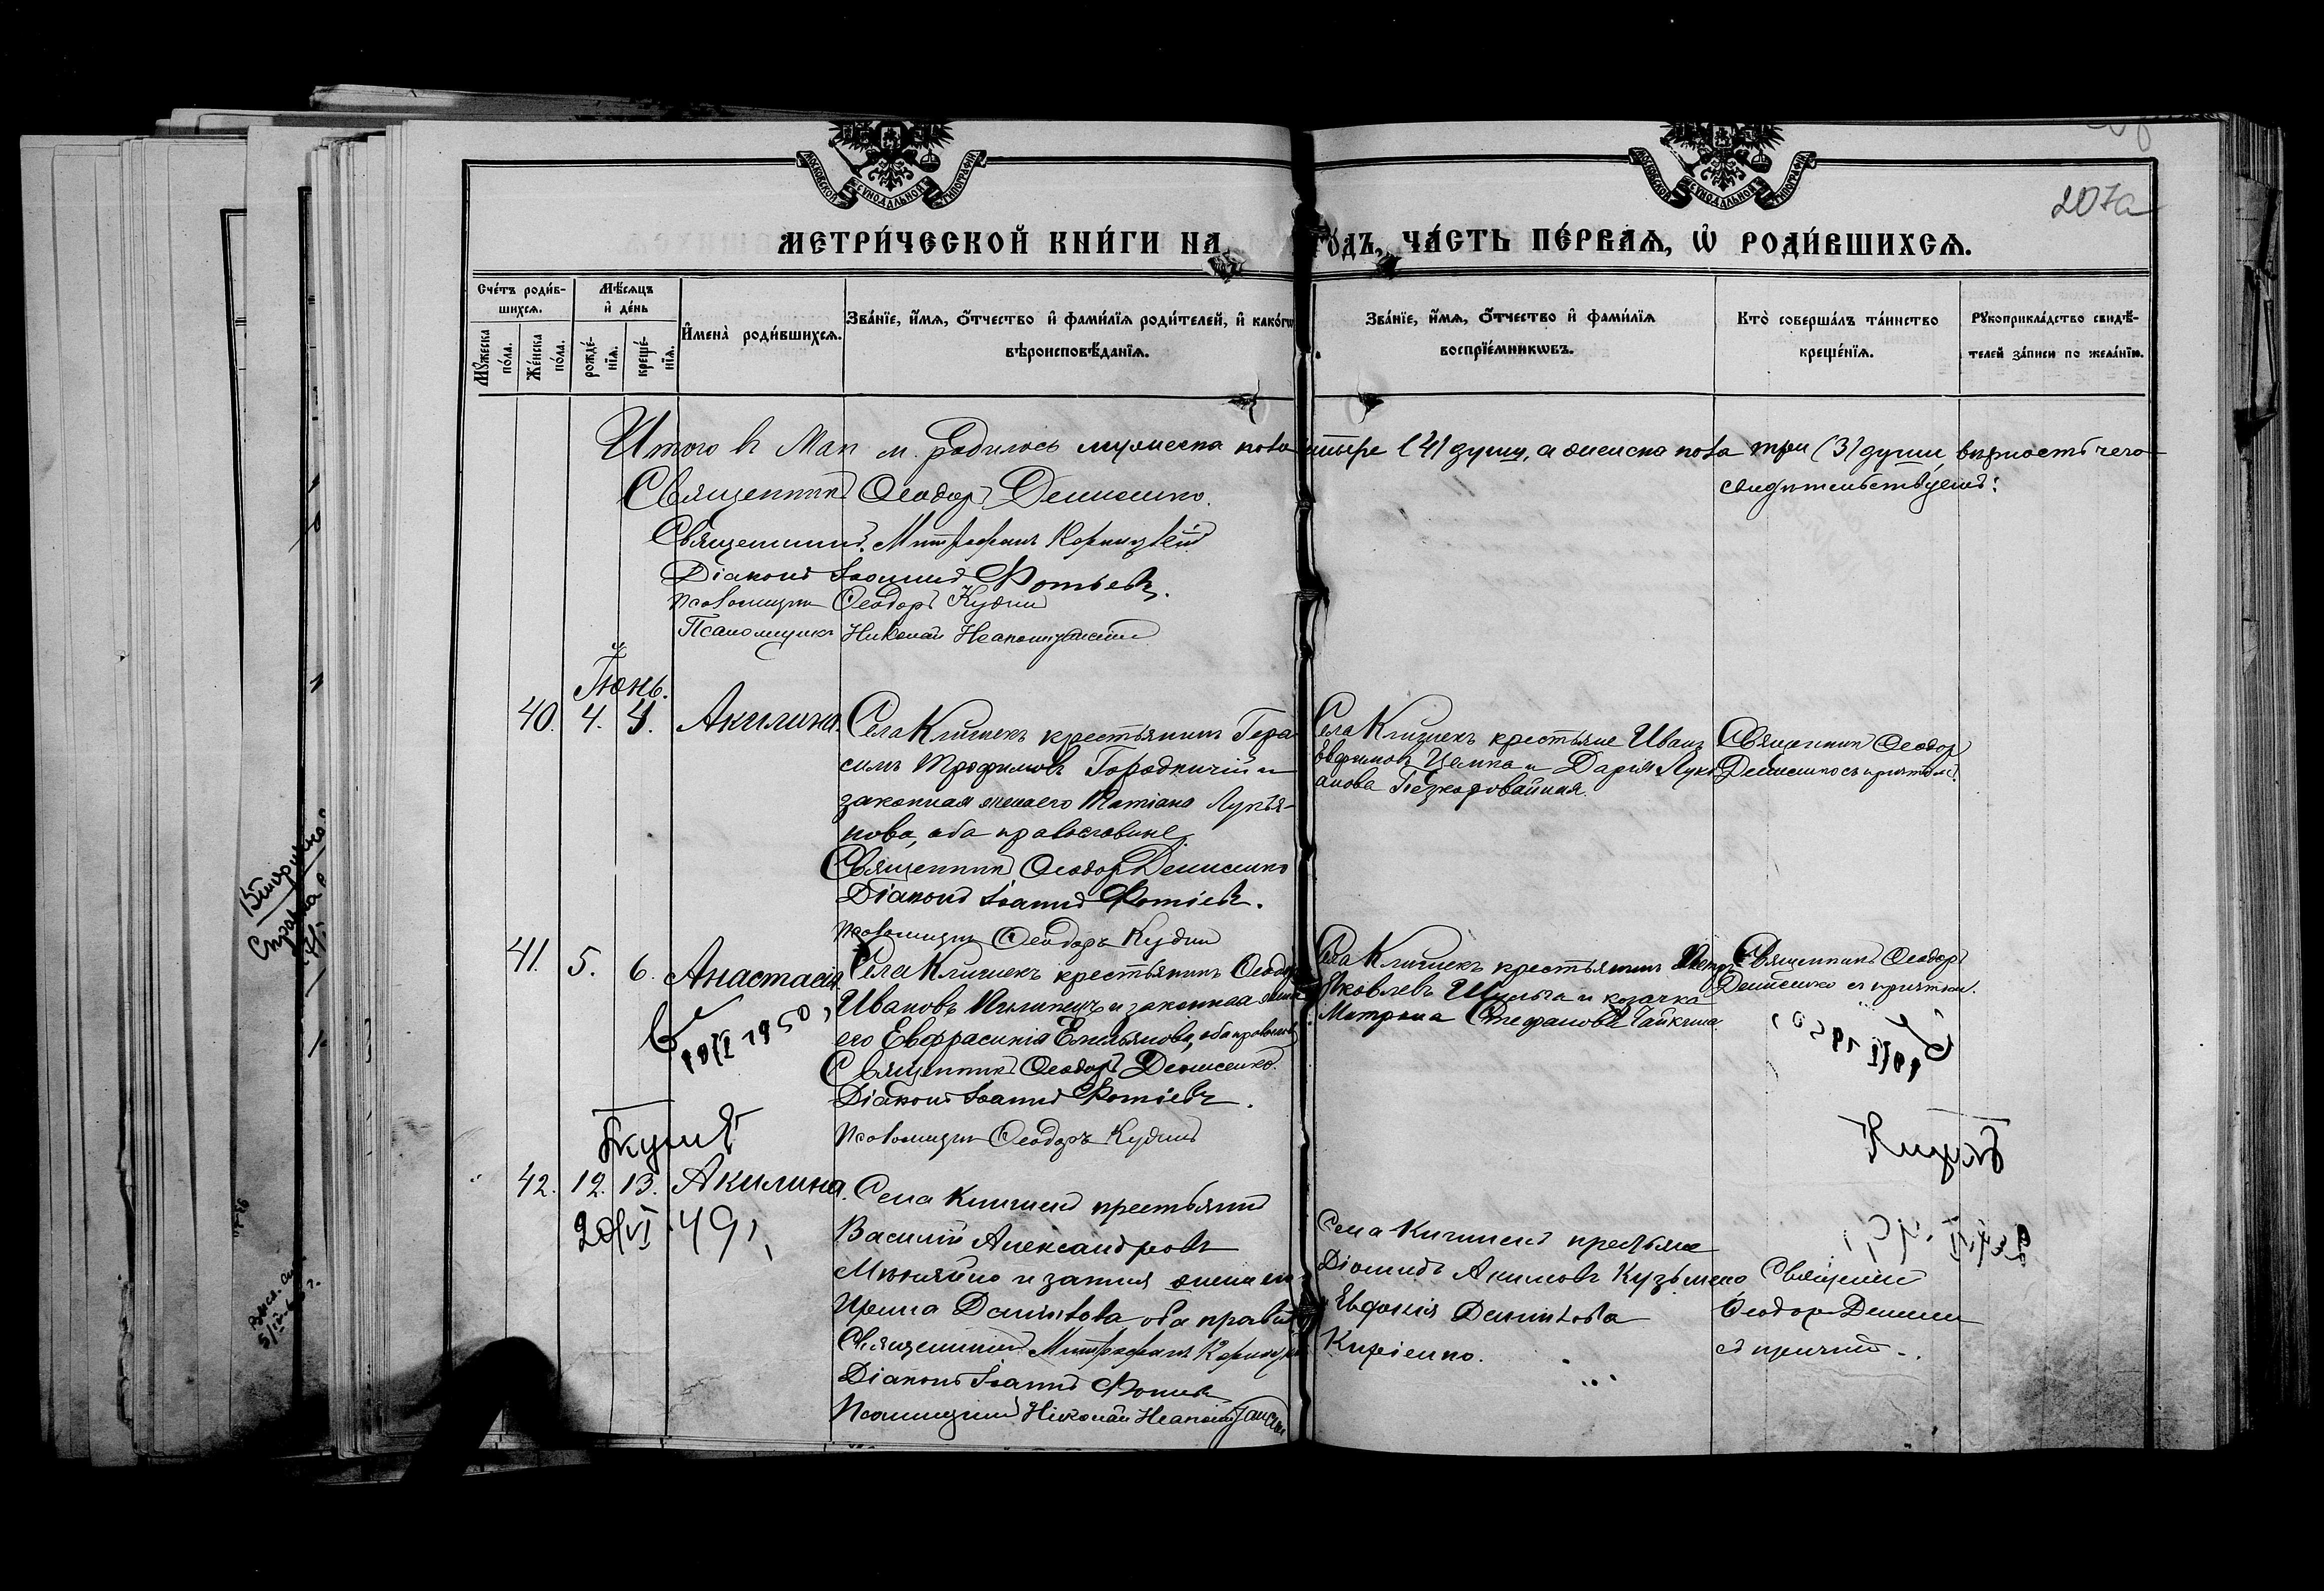 МОСКОВСКОЙ СѴНОДАЛЬНОЙ ТИПОГРАФІИ
МОСКОВСКОЙ СѴНОДАЛЬНОЙ ТИПОГРАФІИ
207а
МЕТРИ́ЧЕСКОЙ КНИ́ГИ НА ГО́ДЪ, ЧА́СТЬ ПЕ́РВАѦ, Ѡ҆ РОДИ́ВШИХСѦ.
Сче́тъ роди́в-
шихсѧ.
Мꙋ́жеска по́ла.
Же́нска по́ла.
Мѣ́сѧцъ
и҆ де́нь
рожде́-
нїѧ.
креще́-
нїѧ.
И҆мена̀ роди́вшихсѧ.
Зва́нїе, и҆́мѧ, ѻ҆́тчество и҆ фами́лїѧ роди́телей, и҆ како́гѡ
вѣроисповѣ́данїѧ.
Зва́нїе, и҆́мѧ, ѻ҆́тчество и҆ фами́лїѧ
воспрїе́мникѡвъ.
Кто̀ соверша́лъ та́инство
креще́нїѧ.
Рꙋкоприкла́дство свидѣ́-
телей за́писи по жела́нїю.
Итого в Маѣ м. родилось мужеска пола четыре (4) душ, а женска пола три (3) души, вѣрность чего
свидѣтельствуемъ:
Священникъ Ѳеодоръ Денисенко.
Священникъ Митрофанъ Корницкій
Діаконъ Іоаннъ Фотьевъ.
Псаломщикъ Ѳеодоръ Кудин
Псаломщикъ Николай
Іюнь.
40. 4. 4. Акилина.
Села Клишекъ крестьянинъ Гера-
симъ Трофимовъ Городничій и
законная жена его Татіана Лукья-
нова, оба православные
Священникъ Ѳеодоръ Денисенко
Діаконъ Іоаннъ Фотіевъ.
Псаломщикъ Ѳеодоръ Кудин
Села Клишекъ крестьяне Иванъ
Евфимовъ Цемка и Дарія Лукі-
анова
Священникъ Ѳеодоръ
Денисенко съ причтомъ.
41. 5. 6. Анастасія.
Села Клишекъ крестьянинъ Ѳеодоръ
Ивановъ Пилипецъ и законная жена
его Евфрасинія Емельянова, оба православ.
Священникъ Ѳеодоръ Денисенко.
Діаконъ Іоаннъ Фотіевъ.
Псаломщикъ Ѳеодоръ Кудинъ
Села Клишекъ крестьянинъ Петръ
Яковлевъ Шульга и козачка
Матрона Стефанова Чайкина
Священникъ Ѳеодоръ
Денисенко съ причтомъ.
1950
42. 12. 13. Акилина.
20/VI 49
Села Клишекъ крестьянинъ
Василій Александровъ
и законная жена его
Ирина Даніилова, оба правосл.
Священникъ Митрофанъ Корницкій
Діаконъ Іоаннъ Фотіевъ
Псаломщикъ Николай
Села Клишекъ крестьяне
Діомидъ Акимовъ Кузьменко
и Евфимія Даніилова
Киріенко.
Священникъ
Ѳеодоръ Денисен
съ причтомъ.
Справка